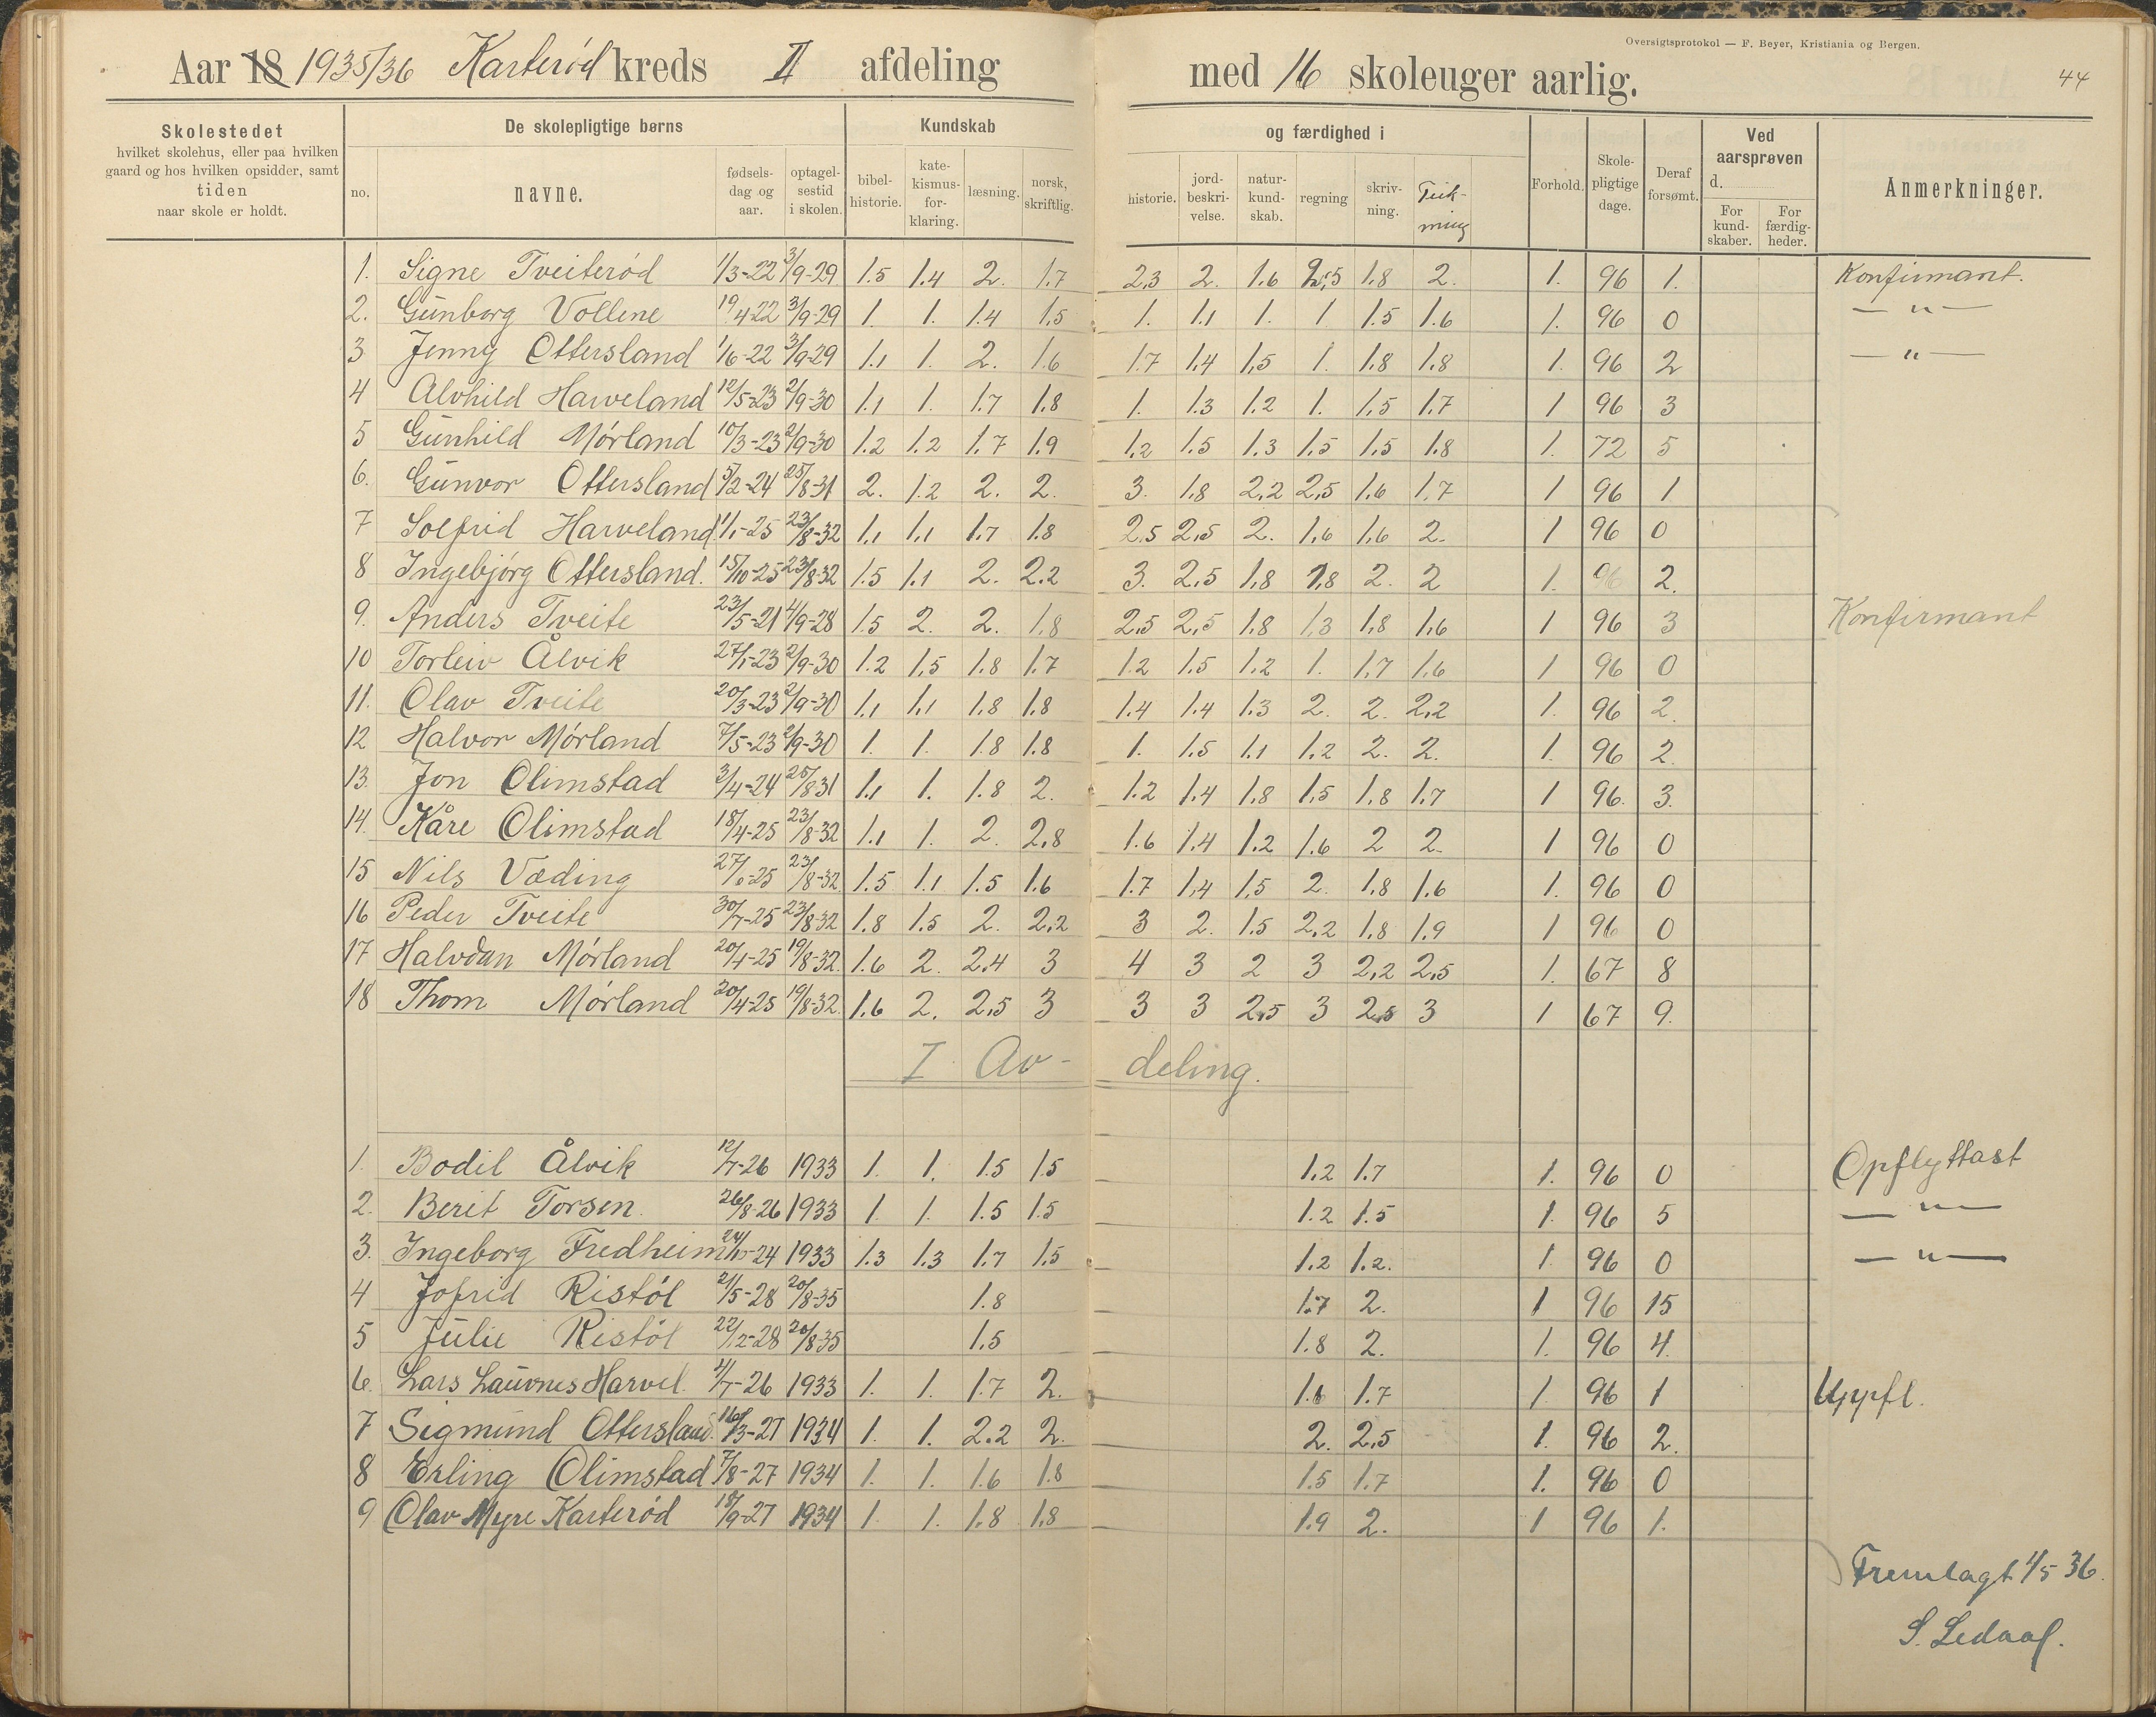 Oversigtsprotokol — F. Beyer, Kristiania og Bergen.
44
Aar 18 1935/36 Karterød kreds II afdeling med 16 skoleuger aarlig.
Skolestedet
hvilket skolehus, eller paa hvilken
gaard og hos hvilken opsidder, samt
tiden
naar skole er holdt.
De skolepligtige børns
no. navne. fødsels-dag og aar. optagel-sestid i skolen.
Kundskab og færdighed i
bibel-historie. kate-kismus-for-klaring. læsning. norsk, skriftlig. historie. jord-beskri-velse. natur-kund-skab. regning skriv-ning. Teik-ning
Forhold. Skole-pligtige dage. Deraf forsømt.
Ved aarsprøven d.
For kund-skaber. For færdig-heder.
Anmerkninger.
1. Signe Tveiterød 1/3-22 3/9-29 1.5 1.4 2. 1.7 2,3 2. 1.6 2,5 1.8 2. 1. 96 1. Konfirmant.
2. Gunborg Vollene 19/4-22 3/9-29 1. 1. 1.4 1,5 1. 1.1 1. 1 1.5 1.6 1. 96 0 — " —
3 Jenny Ottersland 1/6-22 3/9-29 1.1 1. 2. 1.6 1.7 1,4 1,5 1. 1,8 1,8 1. 96 2 — " —
4 Alvhild Harveland 12/5-23 2/9-30 1.1 1. 1.7 1.8 1. 1.3 1.2 1. 1,5 1,7 1 96 3
5 Gunhild Mørland 10/3-23 2/9-30 1.2 1.2 1.7 1.9 1,2 1.5 1.3 1,5 1,5 1.8 1. 72 5
6. Gunvor Ottersland 5/2-24 25/8-31 2. 1.2 2. 2. 3. 1.8 2,2 2,5 1,6 1,7 1 96 1
7 Solfrid Harveland 1/1-25 23/8-32 1.1 1.1 1.7 1.8 2.5 2,5 2. 1,6 1,6 2. 1 96 0
8 Ingebjørg Ottersland. 15/10-25 23/8-32 1.5 1.1 2. 2.2 3. 2,5 1,8 1,8 2. 2 1. 96 2.
9. Anders Tveite 23/5-21 4/9-28 1.5 2. 2. 1,8 2,5 2,5 1,8 1,3 1,8 1,6 1 96 3 Konfirmant
10 Torleiv Ålvik 27/1-23 2/9-30 1.2 1,5 1.8 1.7 1.2 1.5 1.2 1. 1,7 1,6 1 96 0
11. Olav Tveite 20/3-23 2/9-30 1.1 1.1 1.8 1.8 1.4 1.4 1.3 2. 2. 2,2 1. 96 2.
12 Halvor Mørland 7/5-23 2/9-30 1. 1. 1.8 1.8 1. 1.5 1.1 1,2 2. 2. 1. 96 2.
13. Jon Olimstad 3/4-24 25/8 31 1.1 1. 1.8 2. 1.2 1.4 1,8 1,5 1,8 1,7 1 96. 3.
14. Kåre Olimstad 18/4-25 23/8-32 1.1 1. 2. 2,8 1.6 1.4 1.2 1.6 2 2. 1 96 0
15 Nils Væding 27/6-25 23/8-32. 1.5 1.1 1.5 1.6 1.7 1,4 1,5 2. 1.8 1.6 1. 96 0
16 Peder Tveite 30/7-25 23/8-32 1.8 1.5 2. 2,2 3 2. 1.5 2,2 1.8 1.9 1 96 0
17 Halvdan Mørland 20/4-25 19/8-32. 1.6 2. 2,4 3 4 3 2 3 2,2 2,5 1. 67 8
18 Thom Mørland 20/4-25 19/8-32. 1.6 2. 2,5 3 3 3 2,5 3 2,5 3 1 67 9.
I Av-deling.
1. Bodil Ålvik 12/7-26 1933 1. 1. 1.5 1.5 1.2 1.7 1. 96 0 Opflyttast
2. Berit Torsen. 26/8-26 1933 1 1. 1.5 1.5 1.2 1.5 1. 96 5 — " —
3. Ingeborg Fredheim 24/10-24 1933 1.3 1.3 1.7 1.5 1.2 1.2. 1. 96 0 — " —
4 Jofrid Ristøl 21/5-28 20/8-35 1.8 1.7 2. 1 96 15
5 Julie Ristøl 22/12-28 20/8 35 1.5 1.8 2. 1. 96 4.
6. Lars Lauvnes Harvel. 4/7-26 1933 1. 1. 1.7 2. 1.6 1.7 1. 96 1 Uppfl.
7 Sigmund Ottersland. 16/3-27 1934 1. 1. 2.2 2. 2. 2,5 1. 96 2.
8 Erling Olimstad 7/8-27 1934 1. 1. 1.6 1.8 1.5 1.7 1. 96 0
9 Olav Myre Karterød 18/9-27 1934 1. 1. 1.8 1,8 1.9 2. 1 96 1.
Fremlagt 4/5 36.
S. Ledaal.